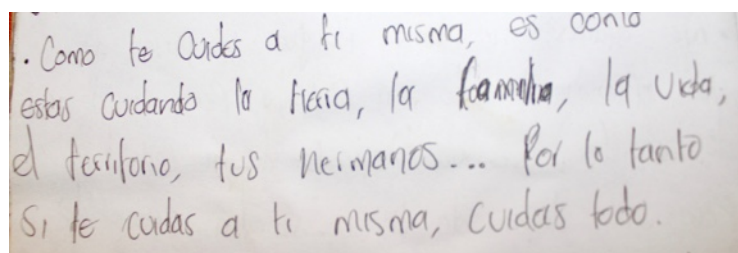 . Como te cuides a ti misma, es como
estas cuidando la tierra, la familia, la vida,
el territorio, tus hermanos... Por lo tanto
si te cuidas a ti misma, cuidas todo.